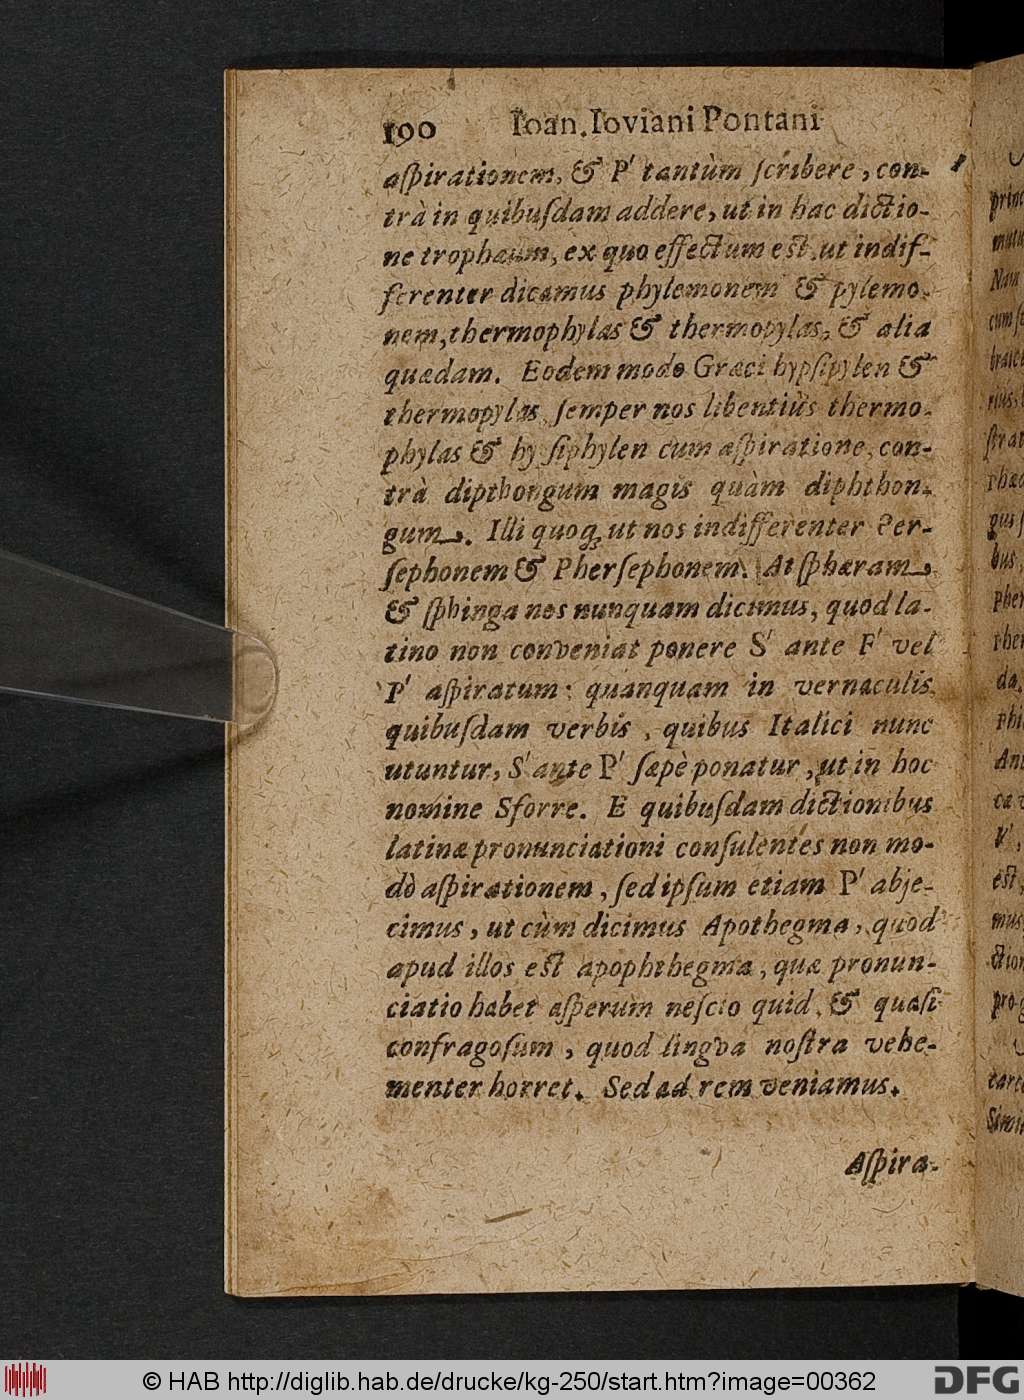 190 Ioan. Ioviani Pontani
aſpirationem, & P' tantùm ſcribere, con-
trà in quibuſdam addere, ut in hac dictio-
ne trophæum, ex quo effectum est, ut indif-
ferenter dicamus phylemonem & pylemo-
nem, thermophylas & thermopylas, & alia
quædam. Eodem modo Græci hypſipylen &
thermopylas, ſemper nos libentiùs thermo-
phylas & hyſiphylen cum aſpiratione, con-
trà dipthongum magis quàm diphthon-
gum. Illi quoq; ut nos indifferenter Per-
ſephonem & Pherſephonem. At ſphæram,
& ſphinga nos nunquam dicimus, quod la-
tino non conveniat ponere S' ante F' vel
P' aſpiratum: quanquam in vernaculis
quibuſdam verbis, quibus Italici nunc
utuntur, S' ante P' ſæpè ponatur, ut in hoc
nomine Sforre. E quibuſdam dictionibus
latinæ pronunciationi conſulentes non mo-
dò aſpirationem, ſed ipſum etiam P' abje-
cimus, ut cùm dicimus Apothegma, quod
apud illos est apophthegma, quæ pronun-
ciatio habet aſperum neſcio quid, & quaſi
confragoſum, quod lingva noſtra vehe-
menter horret. Sed ad rem veniamus.
Aſpira-
© HAB http://diglib.hab.de/drucke/kg-250/start.htm?image=00362
DFG